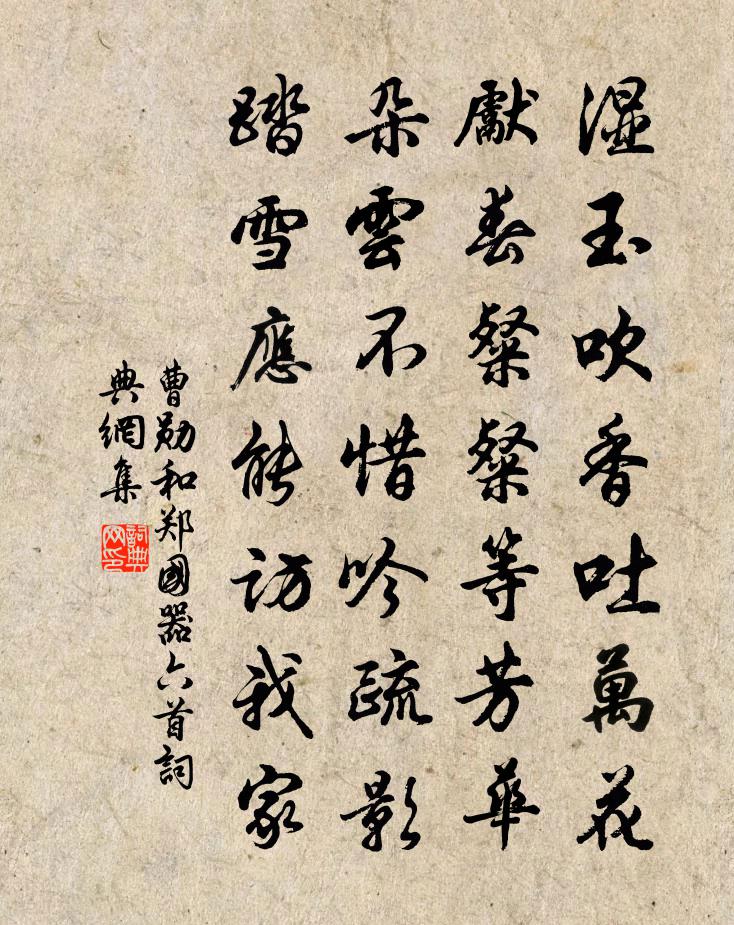 湿玉吹香吐萬花
獻春粲粲等芳華
朵雲不惜吟疏影
踏雪應能訪我家
曹勛和郑國器六首詞
典網集
詞典
网印